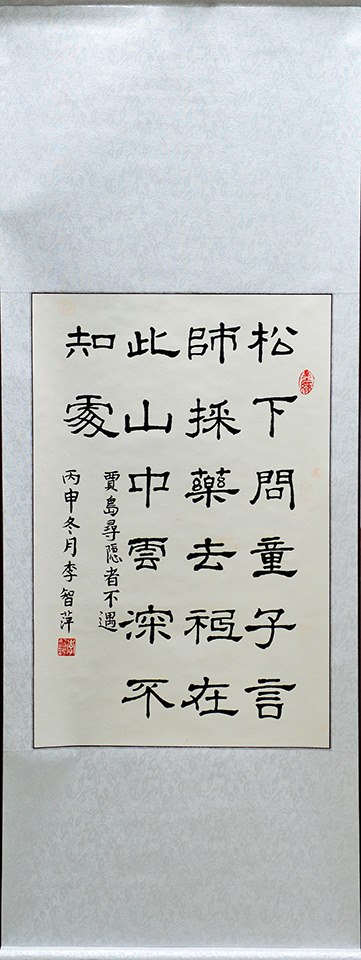 松下問童子言
師採藥去祗在
此山中雲深不
知處
賈島尋隱者不遇
丙申冬月李智萍